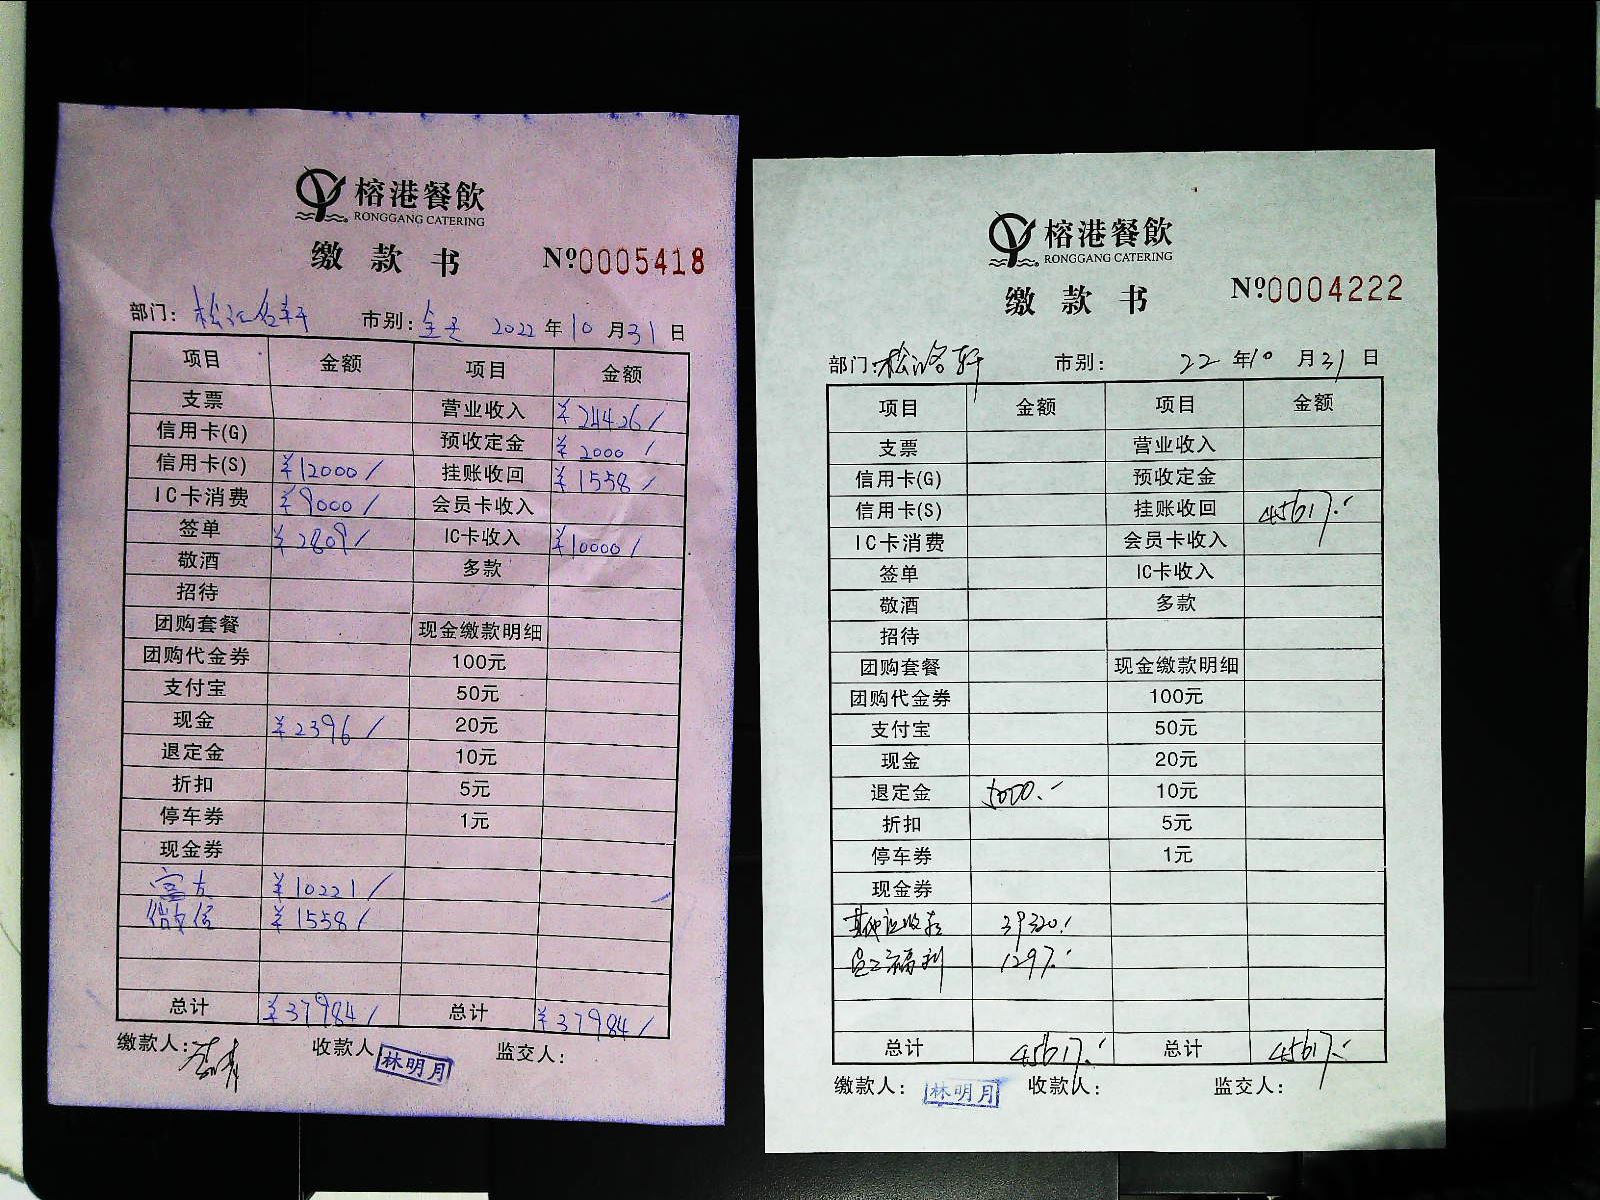 榕港餐飲
RONGGANG CATERING
缴款书 №0005418
部门: 松江名轩 市别: 全天 2022年10月31日
项目 金额 项目 金额
支票 营业收入 ¥24426/
信用卡(G) 预收定金 ¥2000/
信用卡(S) ¥12000/ 挂账收回 ¥1558/
IC卡消费 ¥9000/ 会员卡收入
签单 ¥2809/ IC卡收入 ¥10000/
敬酒 多款
招待
团购套餐 现金缴款明细
团购代金券 100元
支付宝 50元
现金 ¥2396/ 20元
退定金 10元
折扣 5元
停车券 1元
现金券
¥10221/
微信 ¥1558/
总计 ¥37984/ 总计 ¥37984/
缴款人: 收款人 林明月 监交人:
榕港餐飲
RONGGANG CATERING
缴款书 №0004222
部门: 松江名轩 市别: 22年10月31日
项目 金额 项目 金额
支票 营业收入
信用卡(G) 预收定金
信用卡(S) 挂账收回 45617.-
IC卡消费 会员卡收入
签单 IC卡收入
敬酒 多款
招待
团购套餐 现金缴款明细
团购代金券 100元
支付宝 50元
现金 20元
退定金 5000.- 10元
折扣 5元
停车券 1元
现金券
其他应收款 39320.-
员工福利 1297.-
总计 45617.- 总计 45617.-
缴款人: 林明月 收款人: 监交人: